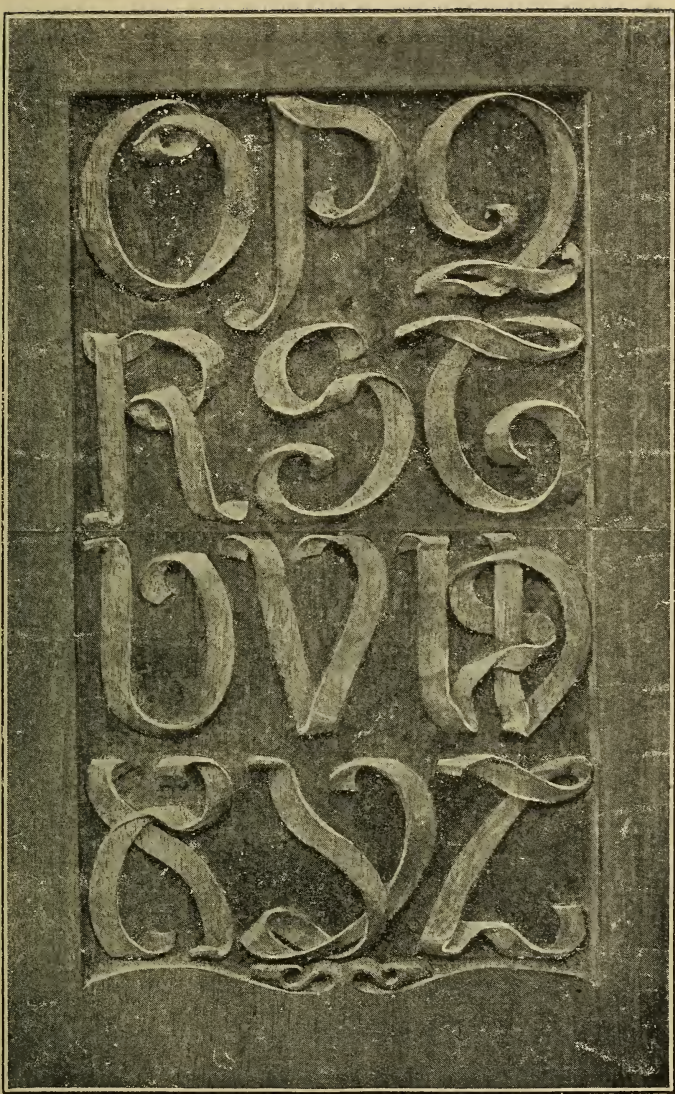 OPQ
RST
UVW
XYZ